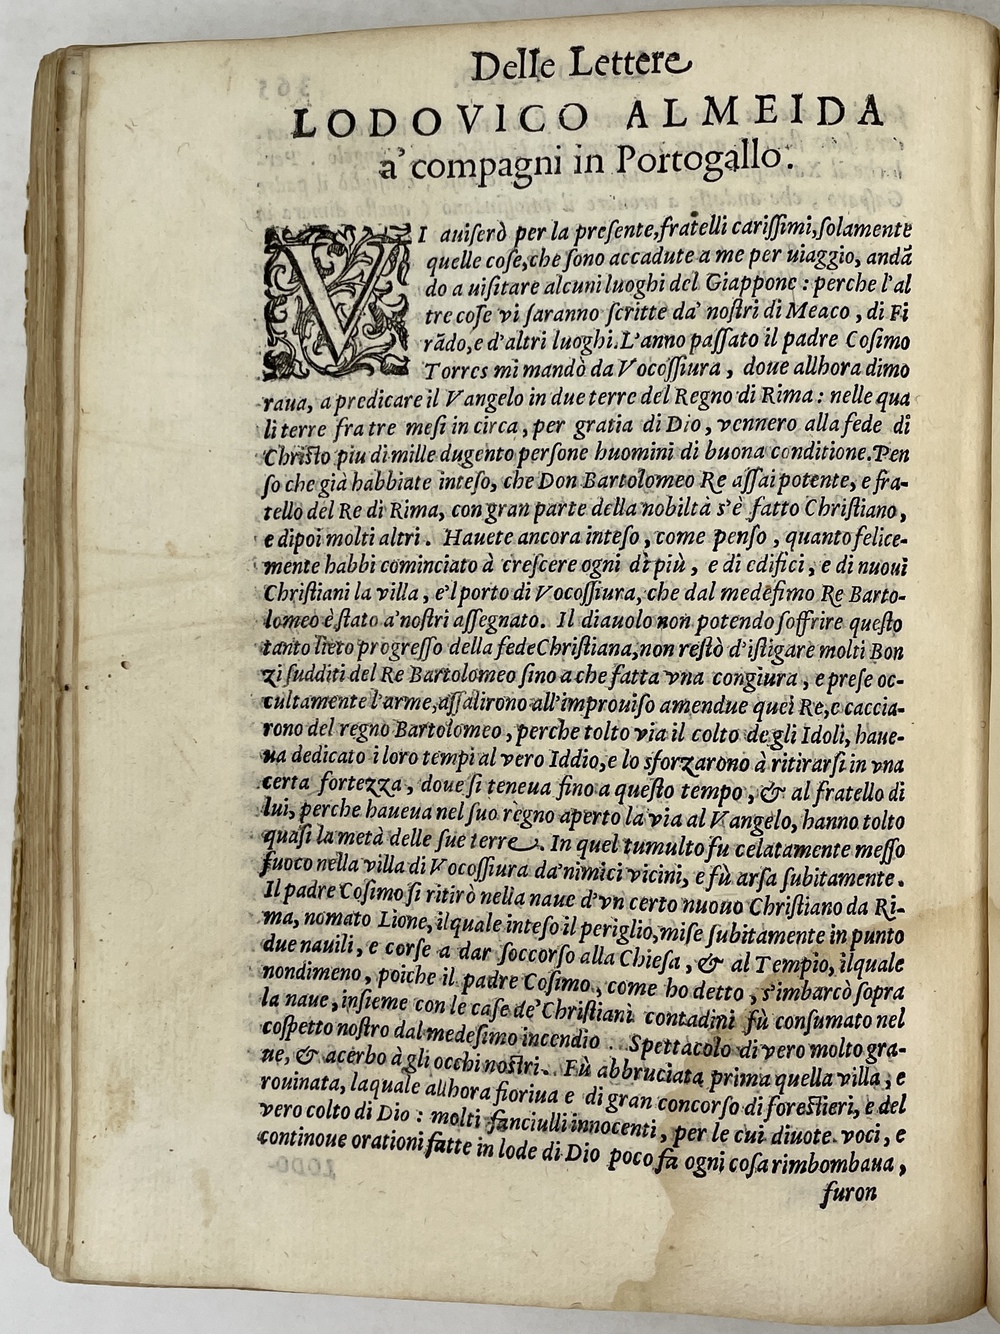 Delle Lettere
LODOVICO ALMEIDA
a' compagni in Portogallo.
VI auiserò per la presente, fratelli carissimi, solamente
quelle cose, che sono accadute a me per uiaggio, andā
do a uisitare alcuni luoghi del Giappone : perche l'al
tre cose vi saranno scritte da' nostri di Meaco , di Fi
rādo, e d'altri luoghi. L'anno passato il padre Cosimo
Torres mi mandò da Vocossiura , doue allhora dimo
raua, a predicare il Vangelo in due terre del Regno di Rima : nelle qua
li terre fra tre mesi in circa , per gratia di Dio , vennero alla fede di
Christo piu di mille dugento persone huomini di buona conditione. Pen
so che già habbiate inteso, che Don Bartolomeo Re assai potente, e fra-
tello del Re di Rima, con gran parte della nobiltà s'è fatto Christiano,
e dipoi molti altri . Hauete ancora inteso , come penso , quanto felice-
mente habbi cominciato à crescere ogni dì più , e di edifici , e di nuoui
Christiani la villa, e'l porto di Vocossiura, che dal medesimo Re Barto-
lomeo è stato a' nostri assegnato. Il diauolo non potendo soffrire questo
tanto lieto progresso della fede Christiana, non restò d'istigare molti Bon
zi sudditi del Re Bartolomeo sino a che fatta vna congiura , e prese oc-
cultamente l'arme, assalirono all'improuiso amendue quei Re, e caccia-
rono del regno Bartolomeo , perche tolto via il colto degli Idoli, haue-
ua dedicato i loro tempi al vero Iddio, e lo sforzarono à ritirarsi in vna
certa fortezza , doue si teneua fino a questo tempo , & al fratello di
lui, perche haueua nel suo regno aperto la via al Vangelo, hanno tolto
quasi la metà delle sue terre . In quel tumulto fu celatamente messo
fuoco nella villa di Vocossiura da' nimici vicini, e fù arsa subitamente .
Il padre Cosimo si ritirò nella naue d'vn certo nuouo Christiano da Ri-
ma, nomato Lione, ilquale inteso il periglio, mise subitamente in punto
due nauili, e corse a dar soccorso alla Chiesa , & al Tempio, ilquale
nondimeno , poiche il padre Cosimo , come ho detto , s'imbarcò sopra
la naue, insieme con le case de' Christiani contadini fù consumato nel
cospetto nostro dal medesimo incendio . Spettacolo di vero molto gra-
ue, & acerbo à gli occhi nostri . Fù abbruciata prima quella villa , e
rouinata, laquale allhora fioriua e di gran concorso di forestieri, e del
vero colto di Dio : molti fanciulli innocenti , per le cui diuote voci, e
continoue orationi fatte in lode di Dio poco fa ogni cosa rimbombaua ,
furon